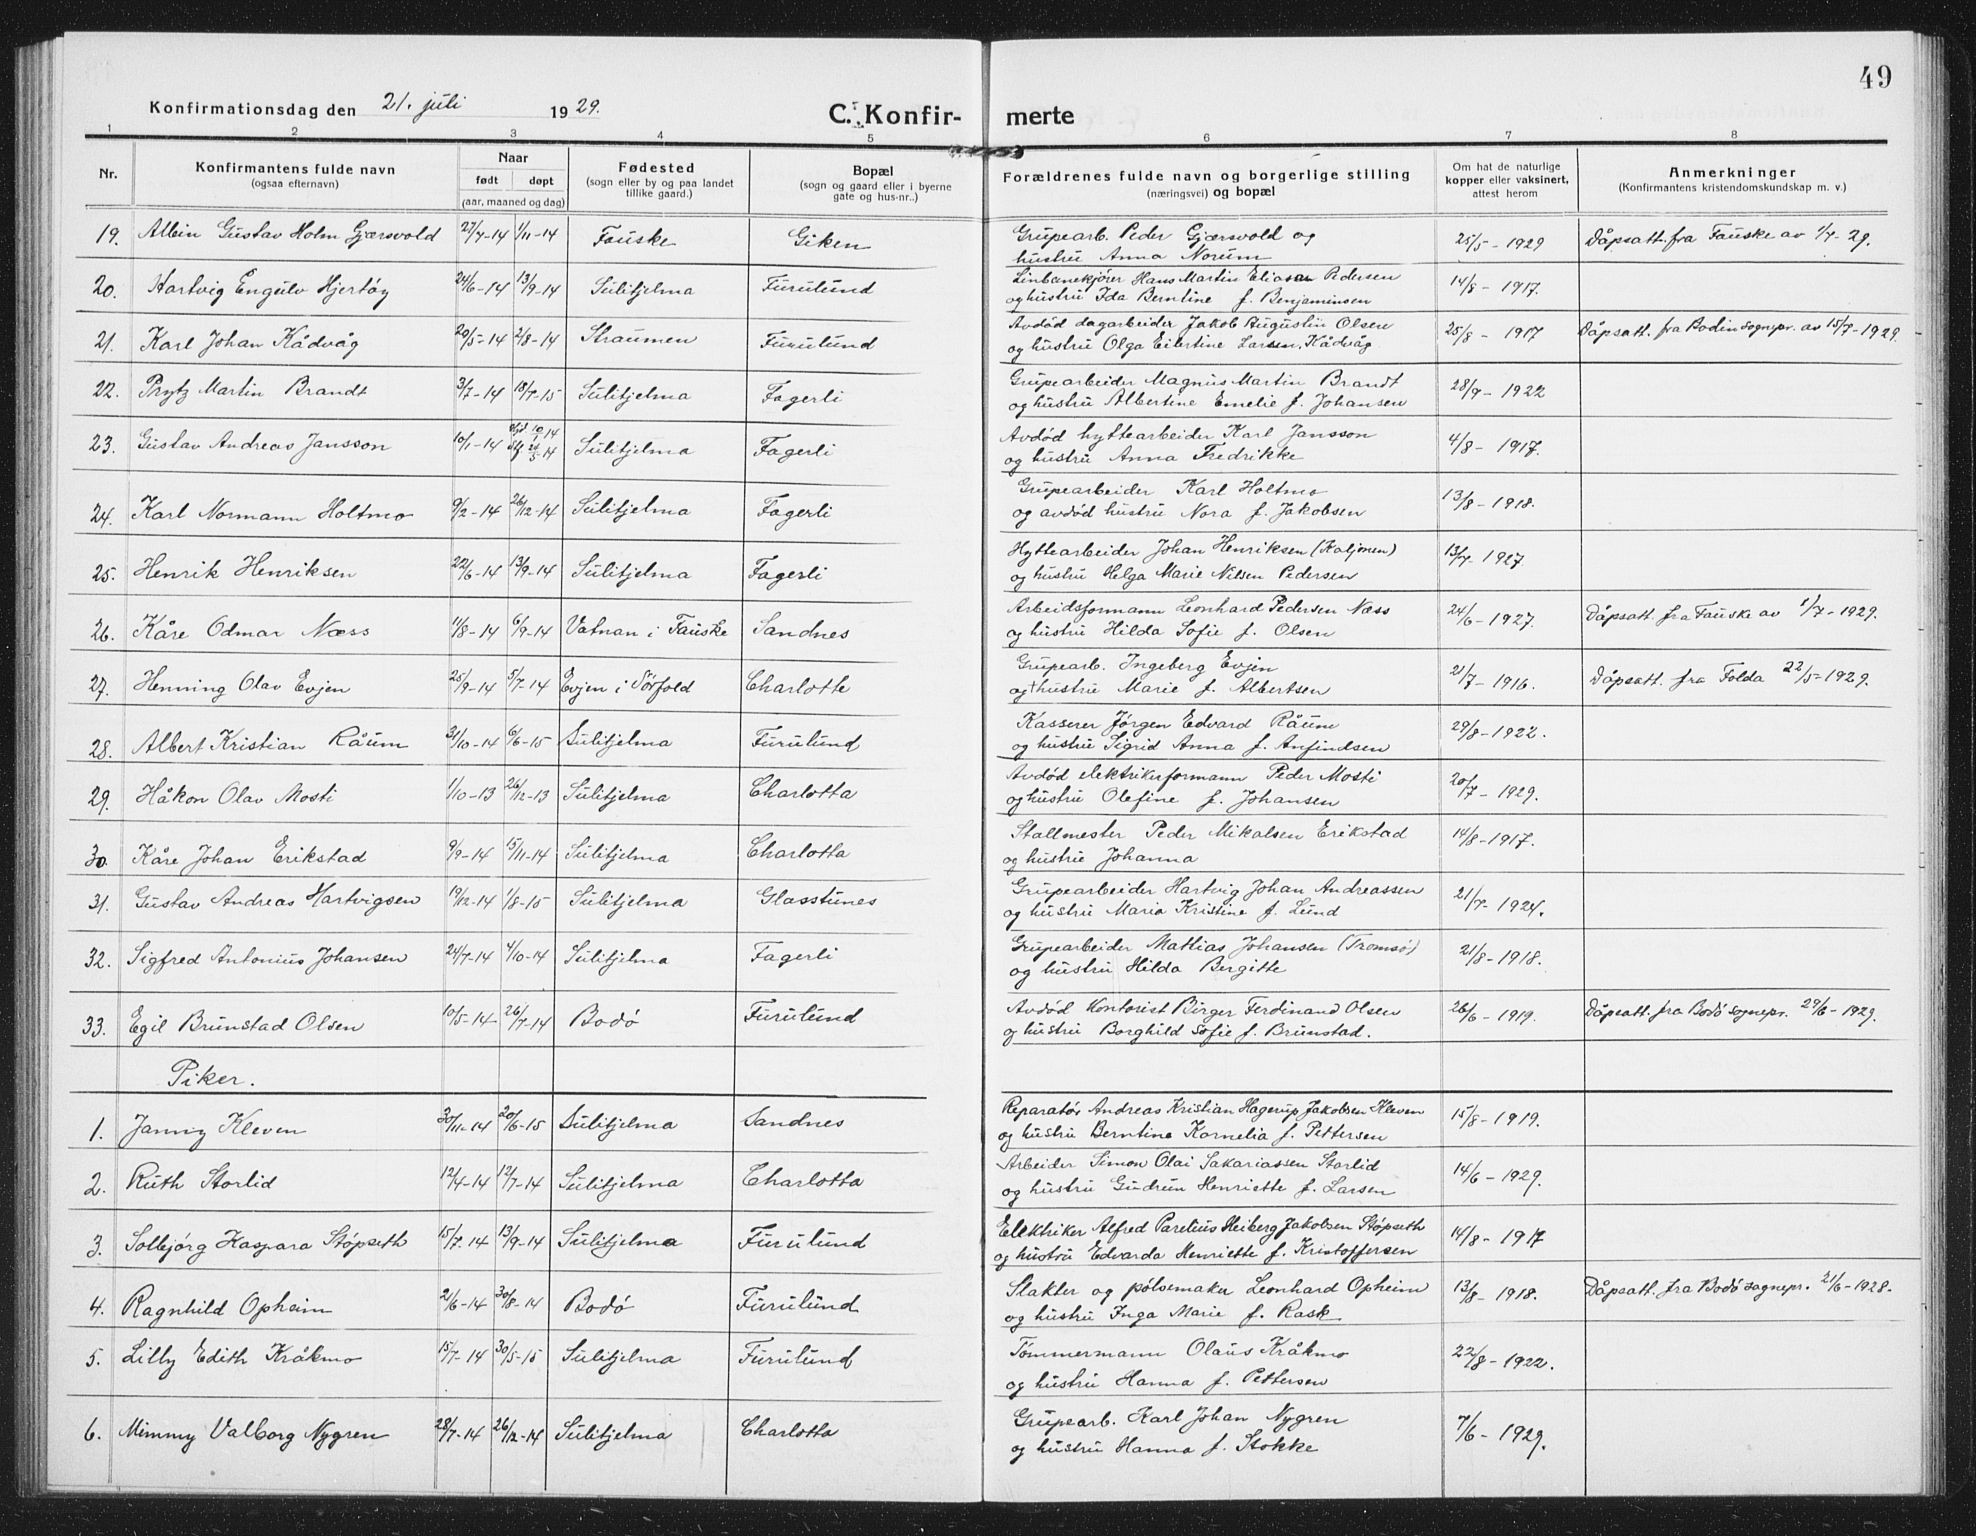 49
Konfirmationsdag den 21. juli 1929.
C. Konfir- merte
1 2 3 4 5 6 7 8
Nr.
Konfirmantens fulde navn
(ogsaa efternavn)
Naar
født døpt
(aar, maaned og dag)
Fødested
(sogn eller by og paa landet
tillike gaard.)
Bopæl
(sogn og gaard eller i byerne
gate og hus-nr..)
Forældrenes fulde navn og borgerlige stilling
(næringsvei) og bopæl
Om hat de naturlige
kopper eller vaksinert,
attest herom
Anmerkninger
(Konfirmantens kristendomskundskap m. v.)
19. Albin Gustav Holm Gjærsvold 27/4-14 1/11-14 Fauske Giken Grupearb. Peder Gjærsvold og 25/5-1929 Dåpsatt. fra Fauske av 1/7-29.
hustru Anna Norum
20. Hartvig Engulv Hjertøy 24/6-14 13/9-14 Sulitjelma Furulund Linbanekjører Hans Martin Eliasan Pedersen 14/8-1917.
og hustru Ida Berntine f. Benjaminsen
21. Karl Johan Kådvåg 20/5-14 2/8-14 Straumen Furulund Avdød dagarbeider Jakob Augustin Olsen 25/8-1917 Dåpsatt. fra Bodin sognepr. av 15/7-1929.
og hustru Olga Eilertine Larsen, Kådvåg
22. Prytz Martin Brandt 3/7-14 18/7-15 Sulitjelma Fagerli Grupearbeider Magnus Martin Brandt 28/9-1922
og hustru Albertine Emelie f. Johansen
23. Gustav Andreas Jansson 10/1-14 hjd. 10/1-14 Sulitjelma Fagerli Avdød hyttearbeider Karl Jansson 4/8-1917.
stf. 24/5-14 og hustru Anna Fredrikke
24. Karl Normann Holtmo 9/2-14 26/12-14 Sulitjelma Fagerli Grupearbeider Karl Holtmo 13/8-1918.
og avdød hustru Nora f. Jakobsen
25. Henrik Henriksen 22/6-14 13/9-14 Sulitjelma Fagerli Hyttearbeider Johan Henriksen (Kaljonen) 13/7-1927
og hustru Helga Marie Nilsen Pedersen
26. Kåre Odmar Næss 11/8-14 6/9-14 Vatnan i Fauske Sandnes Arbeidsformann Leonhard Pedersen Næss 24/6-1927. Dåpsatt. fra Fauske av 1/7-1929.
og hustru Hilda Sofie f. Olsen
27. Henning Olav Evjen 25/9-14 5/7-14 Evjen i Sørfold Charlotte Grupearb. Ingeberg Evjen 21/7-1916. Dåpsatt. fra Folda 22/5-1929.
og hustru Marie f. Albertsen
28. Albert Kristian Råum 31/10-14 6/6-15 Sulitjelma Furulund Kasserer Jørgen Edvard Råum 29/8-1922.
og hustru Sigrid Anna f. Anfindsen
29. Håkon Olav Mosti 1/10-13 26/12-13 Sulitjelma Charlotta Avdød elektrikerformann Peder Mosti 20/7-1929.
og hustru Olefine f. Johansen
30. Kåre Johan Erikstad 9/9-14 15/11-14 Sulitjelma Charlotta Stallmester Peder Mikalsen Erikstad 14/8-1917.
og hustru Johanna
31. Gustav Andreas Hartvigsen 19/12-14 1/8-15 Sulitjelma Glasstunes Grupearbeider Hartvig Johan Andreassen 21/7-1924.
og hustru Maria Kristine f. Lund
32. Sigfred Antonius Johansen 24/7-14 4/10-14 Sulitjelma Fagerli Grupearbeider Mathias Johansen (Tromsø) 21/8-1918.
og hustru Hilda Bergitte
33. Egil Brunstad Olsen 10/5-14 26/7-14 Bodø Furulund Avdød Kontorist Birger Ferdinand Olsen 26/6-1919. Dåpsatt. fra Bodø sognepr. 29/6-1929.
og hustru Borghild Sofie f. Brunstad.
Piker.
1. Janny Kleven 30/11-14 20/6-15 Sulitjelma Sandnes Reparatør Andreas Kristian Hagerup Jakobsen Kleven 15/8-1919.
og hustru Berntine Kornelia f. Pettersen
2. Ruth Storlid 12/4-14 12/7-14 Sulitjelma Charlotta Arbeider Simon Olai Sakariassen Storlid 14/6-1929.
og hustru Gudrun Henriette f. Larsen
3. Solbjørg Kaspara Støpseth 15/7-14 13/9-14 Sulitjelma Furulund Elektriker Alfred Parelius Heiberg Jakobsen Støpseth 14/8-1917
og hustru Edvarda Henriette f. Kristoffersen
4. Ragnhild Opheim 21/6-14 30/8-14 Bodø Furulund Slakter og pølsemaker Leonhard Opheim 13/8-1918. Dåpsatt. fra Bodø sognepr. 21/6-1928.
og hustru Inga Marie f. Rask
5. Lilly Edith Kråkmo 15/7-14 30/5-15 Sulitjelma Furulund Tømmermann Olaus Kråkmo 22/8-1922.
og hustru Hanna f. Pettersen
6. Mimmy Valborg Nygren 28/7-14 26/12-14 Sulitjelma Charlotta Grupearb. Karl Johan Nygren 7/6-1929.
og hustru Hanna f. Stokke